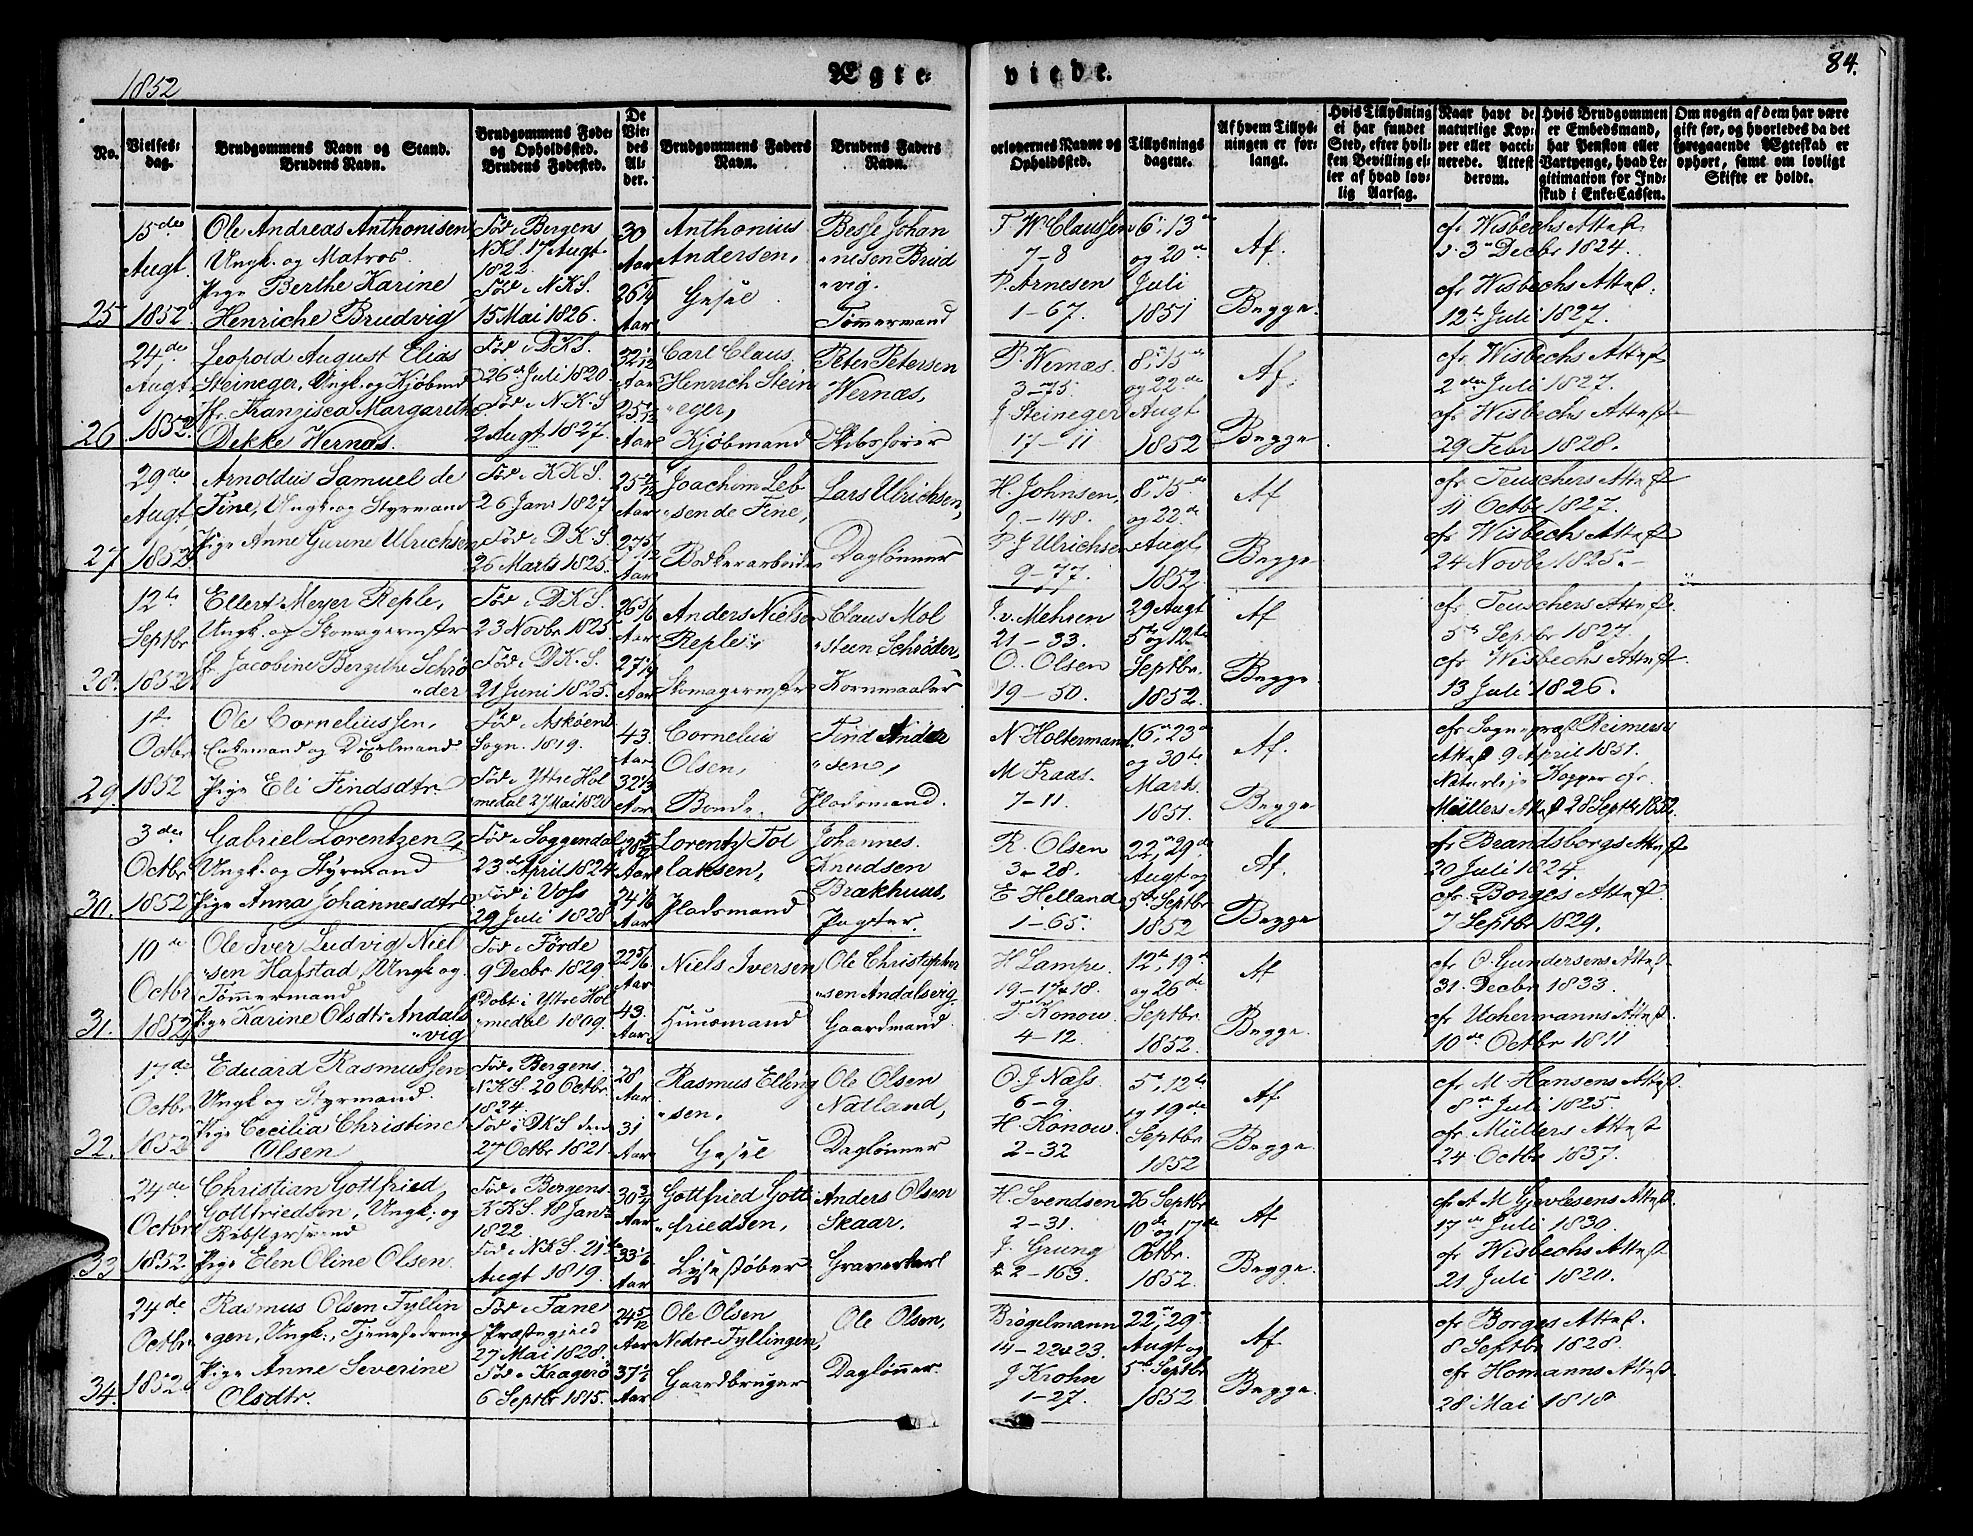 1852
Ægte-
viede.
84.
No.
Vielses-
dag.
Brudgommens Navn og Stand.
Brudens Navn.
Brudgommens Føde-
og Opholdssted.
Brudens Fødested.
De
Vie-
des
Al-
der.
Brudgommens Faders
Navn.
Brudens Faders
Navn.
orlovernes Navne og
Opholdssted.
Tillysnings
dagene.
Af hvem Tillys-
ningen er for-
langt.
Hvis Tillysning
ei har fundet
Sted, efter hvil-
ken Bevilling el-
ler af hvad lov-
lig Aarsag.
Naar havt de
naturlige Kop-
per eller vacci-
nerede. Attest
derom.
Hvis Brudgommen
er Embedsmand,
har Pension eller
Vartpenge, hvad Le-
gitimation for Ind-
skud i Enke-Cassen.
Om nogen af dem har være
gift før, og hvorledes da det
foregaaende Ægteskab er
ophørt, samt om lovligt
Skifte er holdt.
25
15de
Augt.
1852
Ole Andreas Anthonisen
Ungk. og Matros.
Pige Berthe Karine
Henriche Brudvig
Fød i Bergens
N.K.S. 17 Augt
1822.
Fød i N.K.S.
15 Mai 1826.
30
Aar
26 1/4
Aar
Anthonius
Andersen,
Gesel
Besse Johan
nesen Brud
vig.
Tømermand
T W Claussen
7-8
P. Arnesen
1-67.
6, 13de
og 20de
Juli
1851
Af.
Begge.
cfr Wisbechs Attest
d. 3de Decbr 1824.
cfr Wisbechs Attest.
12te Juli 1827.
26
24de
Augt
1852
Leopold August Elias
Steineger, Ungk. og Kjøbmd
Jfr. Franzisca Margarethe
Dekke Wernæs.
Fød i D.K.S.
26de Juli 1820
Fød i N.K.S
2 Augt 1827.
32 1/12
Aar
25 1/12
Aar
Carl Claus
Henrich Stein
eger,
Kjøbmand
Peter Petersen
Wernæs,
Skibsfører
P. Wernæs.
3-75.
J Steineger
17-11
8, 15de
og 22de
Augt
1852
Af.
Begge.
cfr Wisbechs Attest
2den Juli 1827.
cfr Wisbechs Attest
29 Febr 1828.
27
29de
Augt
1852
Arnoldus Samuel de
Fine, Ungk. og Styrmand
Pige Anne Gurine Ulrichsen
Fød i K.K.S.
26 Janr 1827
Fød i D.K.S.
26 Marts 1825.
25 7/12
Aar
27 5/12
Aar
Joachim Leb
sen de Fine,
Bodkerarbeider
Lars Ulrichsen,
Daglønner
H. Johnsen,
9-148.
P. J Ulrichsen
9-77.
8, 15de
og 22de
Augt
1852.
Af
Begge
cfr Teuschers Attest
11 Octbr 1827.
cfr Wisbech Attest
24 Novbr 1825.-
28.
12te
Septbr
1852
Ellert Meyer Reple,
Ungk. og Skomagermstr
Jfr. Jacobine Bergithe Schrø
der
Fød i D.K.S.
23 Novbr 1825
Fød i D.K.S.
21 Juni 1825.
26 5/6
Aar
27 1/4
Aar
Anders Nielsen
Reple,
Skomagermstr
Claus Mol
steen Schrøder,
Kornmaaler
J. v. Mehren
21-33.
O. Olsen
19-50.
29 Augt
5te og 12te
Septbr.
1852.
Af
Begge.
cfr Teuschers Attest.
5te Septbr 1827.
cfr Wisbechs Attest.
13 Juli 1826.
29.
1ste
Octbr
1852
Ole Corneliussen,
Enkemand og Døxelmand
Pige Eli Findsdtr.
Fød i Askøens
Sogn. 1819.
Fød i Yttre Hol
medal 27 Mai 1820
43.
Aar
32 1/3
Aar
Cornelius
Olsen,
Bonde,
Find Ander
sen,
Pladsmand.
N Holtermann.
M Fraas.
7-11.
16, 23de
og 30te
Marts.
1851.
Af.
Begge.
cfr Sognepræst Reimers
Attest 9 April 1851.
Naturlige Kopper cfr.
Müllers Attest 28 Septbr 1852.
30.
3die
Octbr
1852
Gabriel Lorentzen,
Ungk. og Styrmand
Pige Anna Johannesdtr
Fød i Soggendal
23de April 1824
Fød i Voss
29 Juli 1828
28 5/12
Aar
24 1/6
Aar
Lorentz Tol
laksen,
Pladsmand
Johannes
Knudsen
Brækhuus,
Pagter.
R. Olsen
3-28.
E Helland
1-65.
22, 29de
Augt og
5te Septbr
1852
Af.
Begge
cfr Brandsborgs Attest
20 Juli 1824.
cfr. Borges Attest.
7 Septbr 1829.
31.
10de
Octbr
1852
Ole Iver Ludvig Niel
sen Hafstad, Ungk. og
Tømmermand
Pige Karine Olsdtr Andals
vig
Fød i Førde
9 Decbr 1829.
Døbt i Yttre Hol
medal 1809.
22 5/6
Aar
43.
Aar
Niels Iversen
Huusmand
Ole Christopher
sen Andalsvig.
Gaardmand.
H Lampe.
19-17 & 18.
F. Konow.
4-12.
12te, 19de
og 26de
Septbr.
1852.
Af
Begge.
cfr O. Gundersens Attest.
31. Decbr 1833.
cfr Uchermanns Attest.
10de Octbr 1811
32.
17de
Octbr
1852
Eduard Rasmussen
Ungk og Styrmand.
Pige Cecilia Christine
Olsen
Fød i Bergens
N.K.S. 20 Octbr
1824.
Fød i DKS den
27 Octbr 1821
28
Aar
31
Aar
Rasmus Elling
sen.
Gesel
Ole Olsen
Natland,
Daglønner
O. J Næss.
6-9.
H Konow.
2-32
5te, 12te
og 19de
Septbr
1852
Af
Begge.
cfr M Hansens Attest.
8de Juli 1825
cfr. Müllers Attest
24 Octbr 1837.
33
24de
Octbr
1852.
Christian Gottfried
Gottfriedsen, Ungk. og
Rebslgrsvend
Pige Elen Oline Olsen.
Fød i Bergens
K.K.S. 18 Janr
1822.
Fød i N.K.S. 21de
Augt 1819.
30 3/4
Aar
33 1/6
Aar
Gottfried Gott
friedsen,
Lysestøber
Anders Olsen
Skaar.
Graverkarl
H. Svendsen
2-31.
J. Grung
2-163.
26 Septbr
10de og 17de
Octbr.
1852.
Af
Begge.
cfr A M Gjerlesens Attest.
17de Juli 1830.
cfr Wisbechs Attest.
21 Juli 1820.
34.
24de
Octbr
1852.
Rasmus Olsen Fyllin
gen, Ungk., Tjenestedreng
Pige Anne Severine
Olsdtr.
Fød i Fane
Præstegjeld
27 Mai 1828.
Fød i Kragerø
6 Septbr 1815.
24 5/12
Aar
37 1/2
Aar
Ole Olsen
Nedre Fyllingen,
Gaardbruger
Ole Olsen,
Daglønner.
Brøgelmann
14-22 & 23.
J Krohn
1-27.
22, 29de
Augt og
5te Septbr
1852
Af
Begge.
cfr Borges Attest.
8 Septbr 1828.
cfr Homanns Attest.
28 Mai 1818